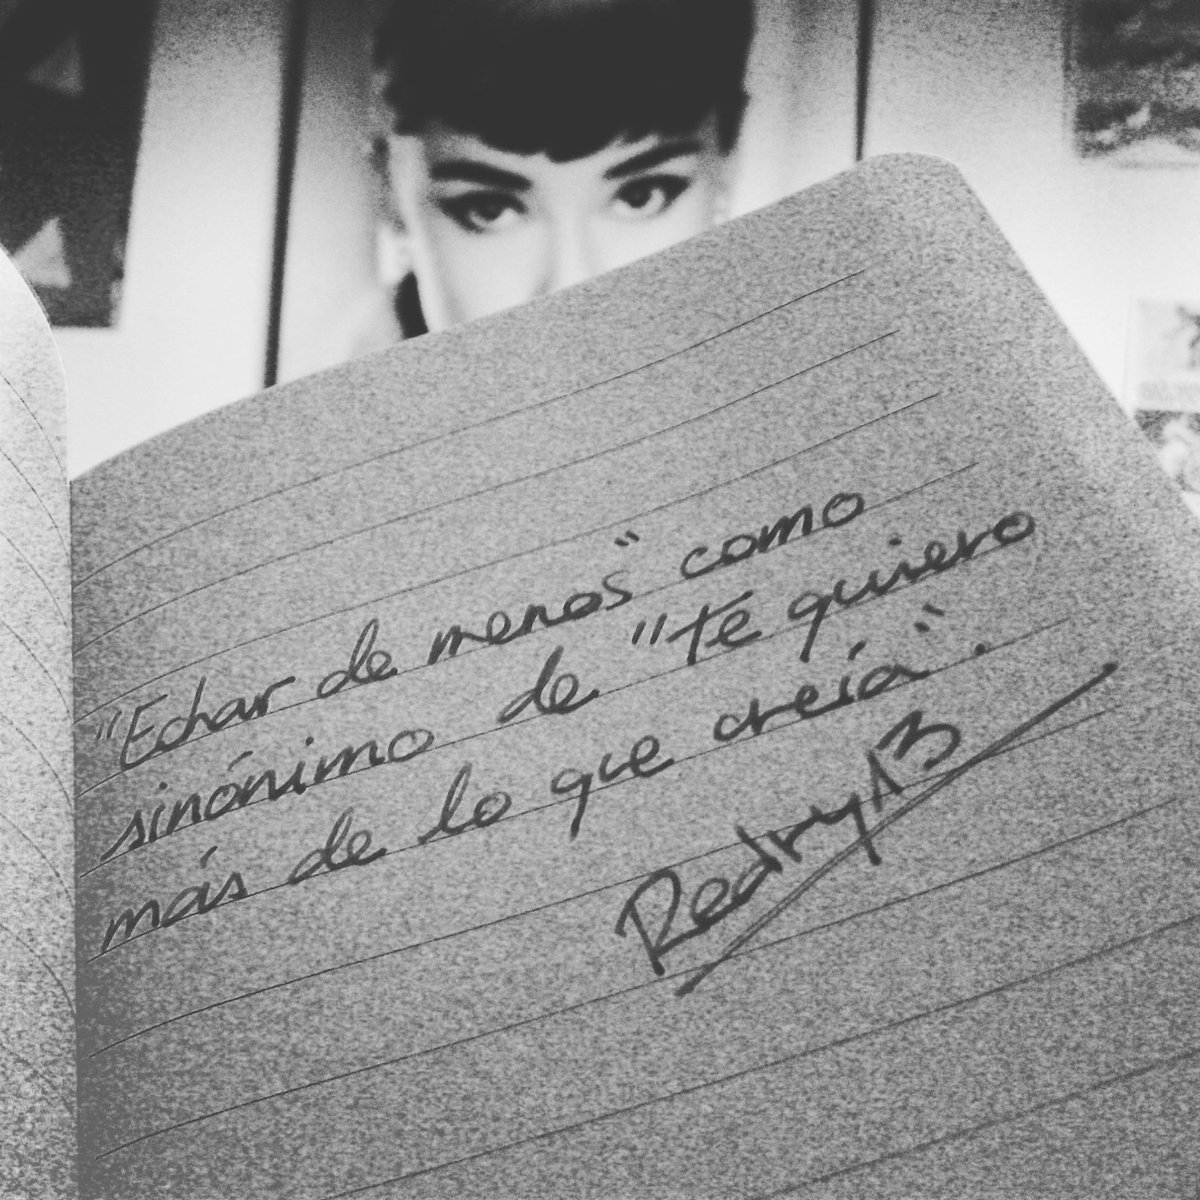 "Echar de menos" como
sinónimo de "te quiero
más de lo que creía".
Redry13